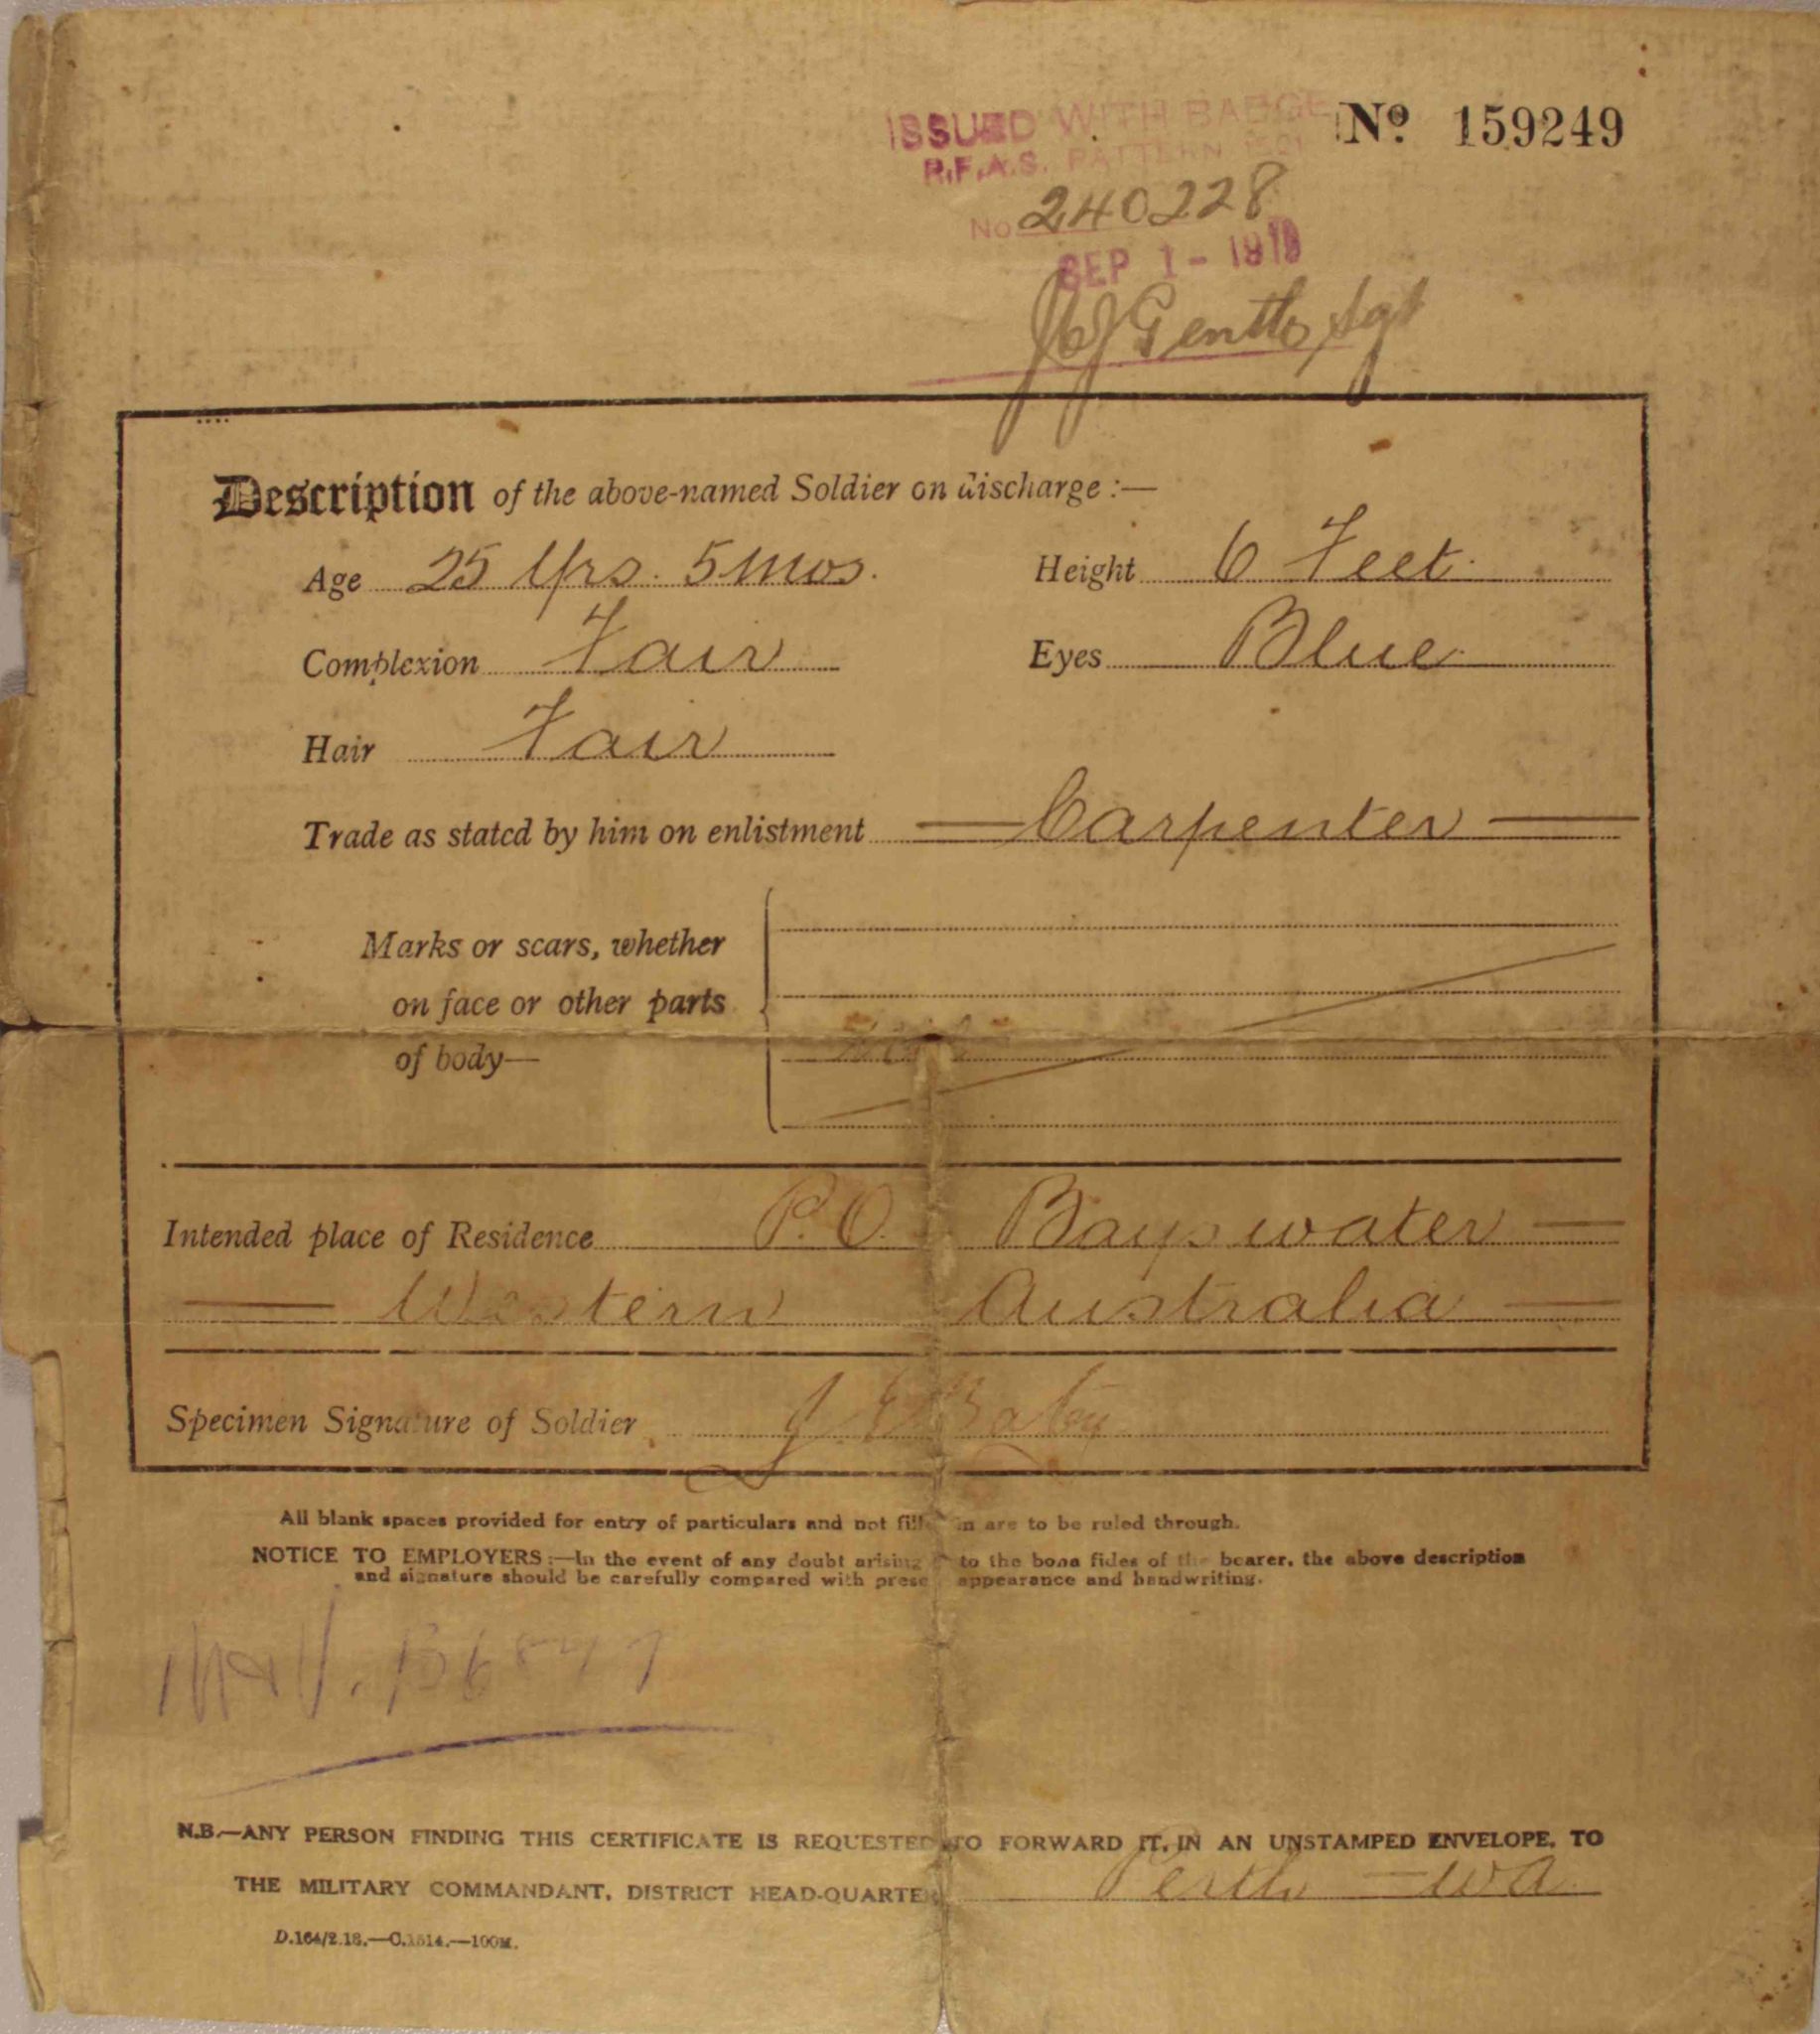 ISSUED WITH BADGE
No. 159249
R.F.A.S. PATTERN
No 240228
SEP 1 - 1919
Sgt
Description of the above-named Soldier on discharge :—
Age 25 Yrs. 5 Mos. Height 6 Feet.
Complexion Fair Eyes Blue
Hair Fair
Trade as stated by him on enlistment — Carpenter —
Marks or scars, whether
on face or other parts
of body—
Intended place of Residence P.O. Bayswater —
— Western Australia —
Specimen Signature of Soldier
All blank spaces provided for entry of particulars and not filled in are to be ruled through.
NOTICE TO EMPLOYERS :—In the event of any doubt arising to the bona fides of the bearer, the above description
and signature should be carefully compared with present appearance and handwriting.
N.B.—ANY PERSON FINDING THIS CERTIFICATE IS REQUESTED TO FORWARD IT, IN AN UNSTAMPED ENVELOPE, TO
THE MILITARY COMMANDANT, DISTRICT HEAD-QUARTERS Perth — WA
D.164/2.18.—C.1514.—100M.